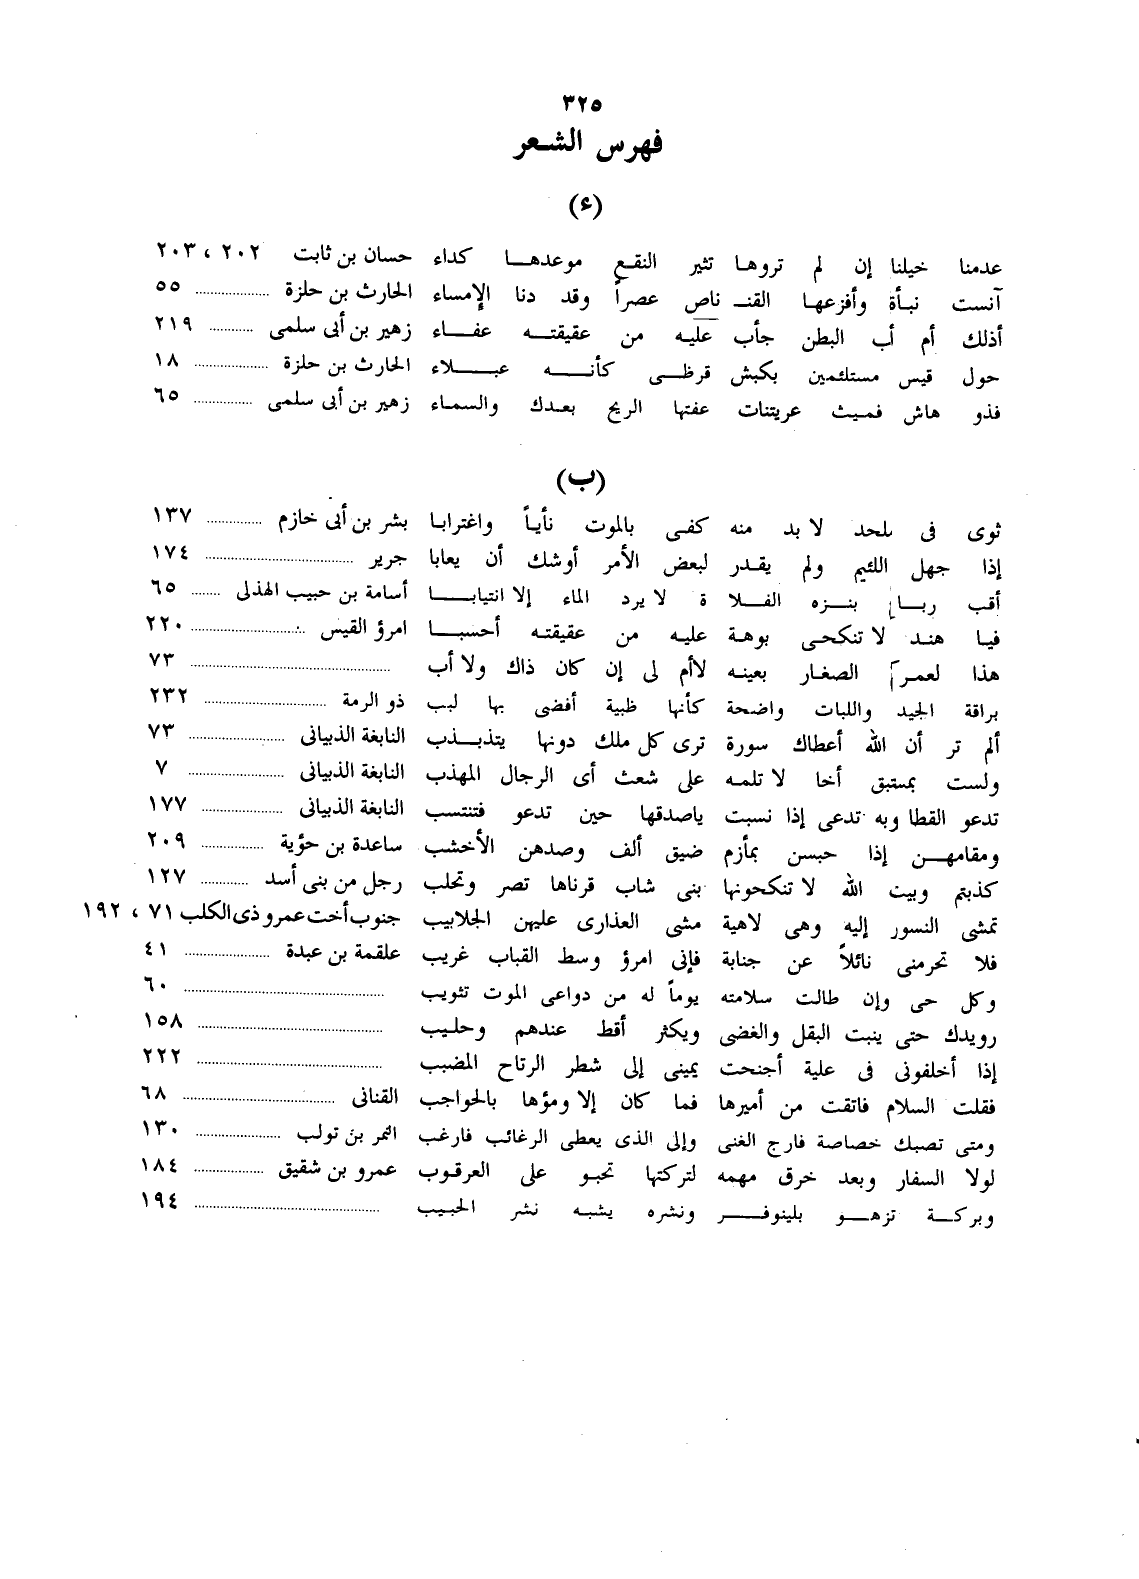 ٣٢٥
فهرس الشعر
(ء)
عدمنا خيلنا إن لم تروها تثير النقع موعدها كداء حسان بن ثابت ٢٠٢ ، ٢٠٣
آنست نبأة وأفزعها القنـ ناص عصراً وقد دنا الإمساء الحارث بن حلزة ٥٥
أذلك أم أب البطن جأب عليه من عقيقته عفاء زهير بن أبى سلمى ٢١٩
حول قيس مستلئمين بكبش قرظى كأنه عبلاء الحارث بن حلزة ١٨
فذو هاش فميث عريتنات عفتها الريح بعدك والسماء زهير بن أبى سلمى ٦٥
(ب)
ثوى فى ملحد لابد منه كفى بالموت نأياً واغترابا بشر بن أبى خازم ١٣٧
إذا جهل اللئيم ولم يقدر لبعض الأمر أوشك أن يعابا جرير ١٧٤
أقب رباع بنزه الفلا ة لا يرد الماء إلا انتيابا أسامة بن حبيب الهذلى ٦٥
فيا هند لا تنكحى بوهة عليه من عقيقته أحسبا امرؤ القيس ٢٢٠
هذا لعمركم الصغار بعينه لاأم لى إن كان ذاك ولا أب ٧٣
براقة الجيد واللبات واضحة كأنها ظبية أفضى بها لبب ذو الرمة ٢٣٢
ألم تر أن الله أعطاك سورة ترى كل ملك دونها يتذبذب النابغة الذبيانى ٧٣
ولست بمستبق أخا لا تلمه على شعث أى الرجال المهذب النابغة الذبيانى ٧
تدعو القطا وبه تدعى إذا نسبت ياصدقها حين تدعو فتنتسب النابغة الذبيانى ١٧٧
ومقامهن إذا حبسن بمأزم ضيق ألف وصدهن الأخشب ساعدة بن حؤية ٢٠٩
كذبتم وبيت الله لا تنكحونها بنى شاب قرناها تصر وتحلب رجل من بنى أسد ١٢٧
تمشى النسور إليه وهى لاهية مشى العذارى عليهن الجلابيب جنوب أخت عمرو ذى الكلب ٧١ ، ١٩٢
فلا تحرمنى نائلاً عن جنابة فإنى امرؤ وسط القباب غريب علقمة بن عبدة ٤١
وكل حى وإن طالت سلامته يوماً له من دواعى الموت تثويب ٦٠
رويدك حتى ينبت البقل والغضى ويكثر أقط عندهم وحليب ١٥٨
إذا أخلفونى فى علية أجنحت يمينى إلى شطر الرتاج المضبب ٢٢٢
فقلت السلام فاتقت من أميرها فما كان إلا ومؤها بالحواجب القنانى ٦٨
ومتى تصبك خصاصة فارج الغنى وإلى الذى يعطى الرغائب فارغب النمر بن تولب ١٣٠
لولا السفار وبعد خرق مهمه لتركتها تحبو على العرقوب عمرو بن شقيق ١٨٤
وبركة تزهو بلينوفر ونشره يشبه نشر الحبيب ١٩٤